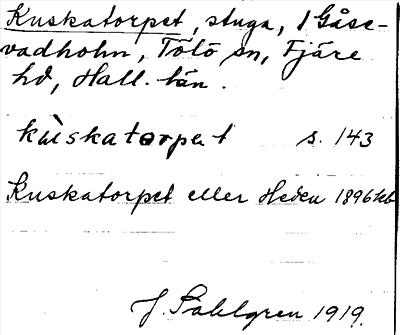 Kuskatorpet, stuga, 1 Gåse-
vadholm, Tölö sn, Fjäre
hd, Hall. län.
kùskatorpet s. 143
Kuskatorpet eller Heden 1896
J. Sahlgren 1919.